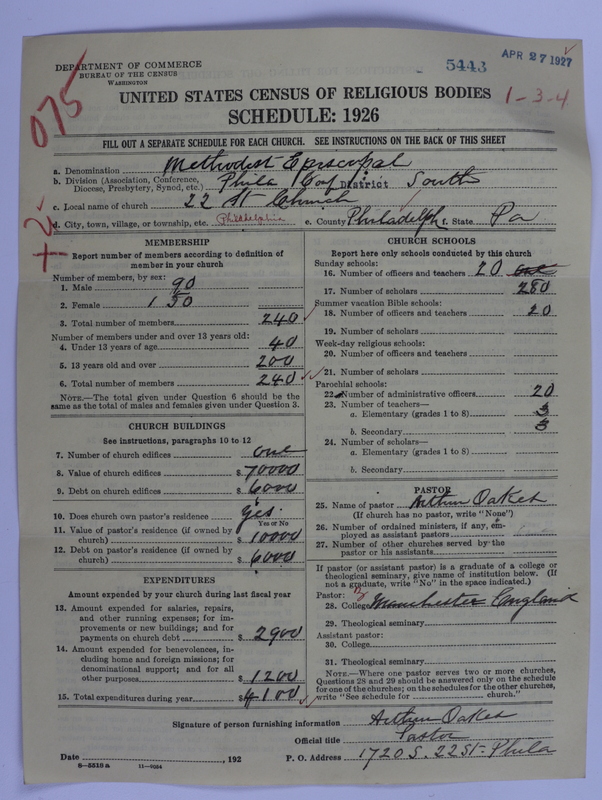 DEPARTMENT OF COMMERCE
BUREAU OF THE CENSUS
WASHINGTON
5443
APR 27 1927
075
1-3-4
UNITED STATES CENSUS OF RELIGIOUS BODIES
SCHEDULE: 1926
FILL OUT A SEPARATE SCHEDULE FOR EACH CHURCH. SEE INSTRUCTIONS ON THE BACK OF THIS SHEET
a. Denomination Methodist Episcopal
b. Division (Association, Conference, Diocese, Presbytery, Synod, etc.) Phila Conf District South
c. Local name of church 22 St Church
d. City, town, village, or township, etc. Philadelphia e. County Philadelph f. State Pa
MEMBERSHIP
Report number of members according to definition of
member in your church
Number of members, by sex:
1. Male 90
2. Female 150
3. Total number of members 240
Number of members under and over 13 years old:
4. Under 13 years of age 40
5. 13 years old and over 200
6. Total number of members 240
NOTE.—The total given under Question 6 should be
same as the total of males and females given under Question 3.
CHURCH BUILDINGS
See instructions, paragraphs 10 to 12
7. Number of church edifices one
8. Value of church edifices $70000
9. Debt on church edifices $6000
10. Does church own pastor's residence yes.
Yes or No
11. Value of pastor's residence (if owned by
church) $10000
12. Debt on pastor's residence (if owned by
church) $6000
EXPENDITURES
Amount expended by your church during last fiscal year
13. Amount expended for salaries, repairs,
and other running expenses; for im-
provements or new buildings; and for
payments on church debt $2900
14. Amount expended for benevolences, in-
cluding home and foreign missions; for
denominational support; and for all
other purposes $1200
15. Total expenditures during year $4100
CHURCH SCHOOLS
Report here only schools conducted by this church
Sunday schools:
16. Number of officers and teachers 20
17. Number of scholars 280
Summer vacation Bible schools:
18. Number of officers and teachers 20
19. Number of scholars
Week-day religious schools:
20. Number of officers and teachers
21. Number of scholars
Parochial schools:
22. Number of administrative officers 20
23. Number of teachers—
a. Elementary (grades 1 to 8) 3
b. Secondary 3
24. Number of scholars—
a. Elementary (grades 1 to 8)
b. Secondary
PASTOR
25. Name of pastor Arthur Oakes
(If church has no pastor, write "None")
26. Number of ordained ministers, if any, em-
ployed as assistant pastors
27. Number of other churches served by the
pastor or his assistants
If pastor (or assistant pastor) is a graduate of a college or
theological seminary, give name of institution below. (If
not a graduate, write "No" in the space indicated.)
Pastor:
28. College Manchester England
29. Theological seminary
Assistant pastor:
30. College
31. Theological seminary
NOTE.—Where one pastor serves two or more churches,
Questions 28 and 29 should be answered only on the schedule
for one of the churches; on the schedules for the other churches,
write "See schedule for church."
Signature of person furnishing information Arthur Oakes
Official title Pastor
Date , 192 P. O. Address 1720 S. 22 St. Phila
8—5510a 11—9084